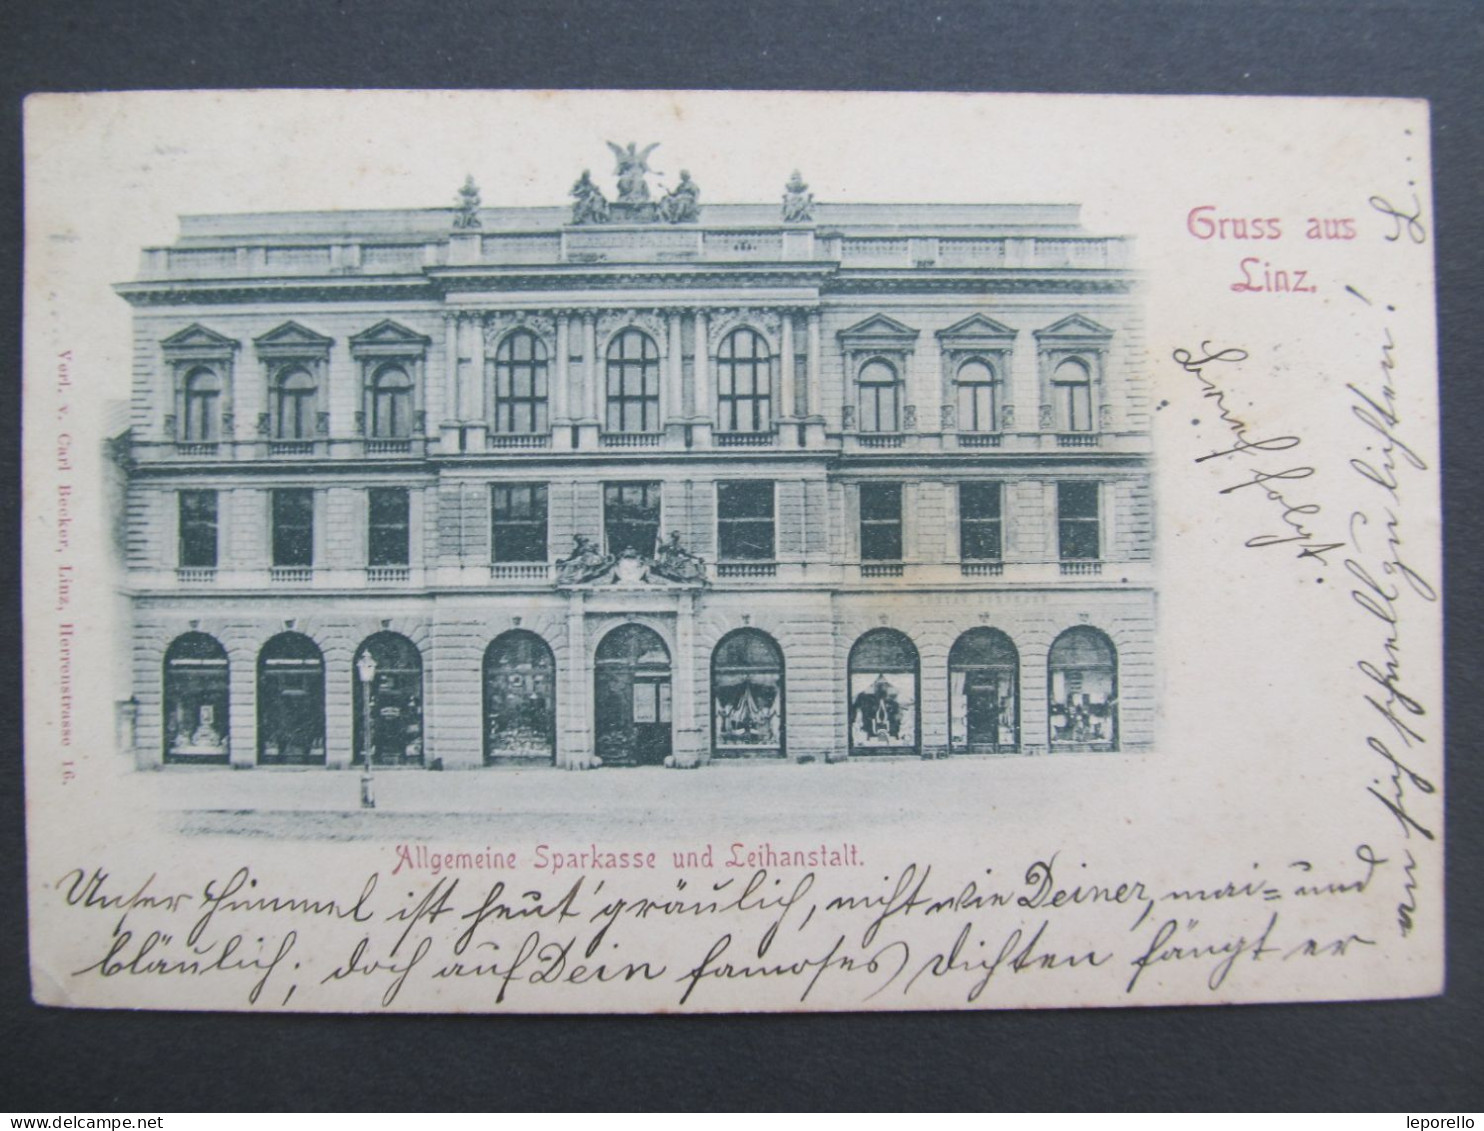 Gruss aus
Linz.
Verl. v. Carl Becker, Linz, Herrenstrasse 16.
Allgemeine Sparkasse und Leihanstalt.
Unser Himmel ist heut' gräulich, nicht wie Deiner, mai- und
bläulich; doch auf Dein famoses Dichten fängt er
an sich schnell zu lichten! L...
Brief folgt.
delcampe.net
leporello